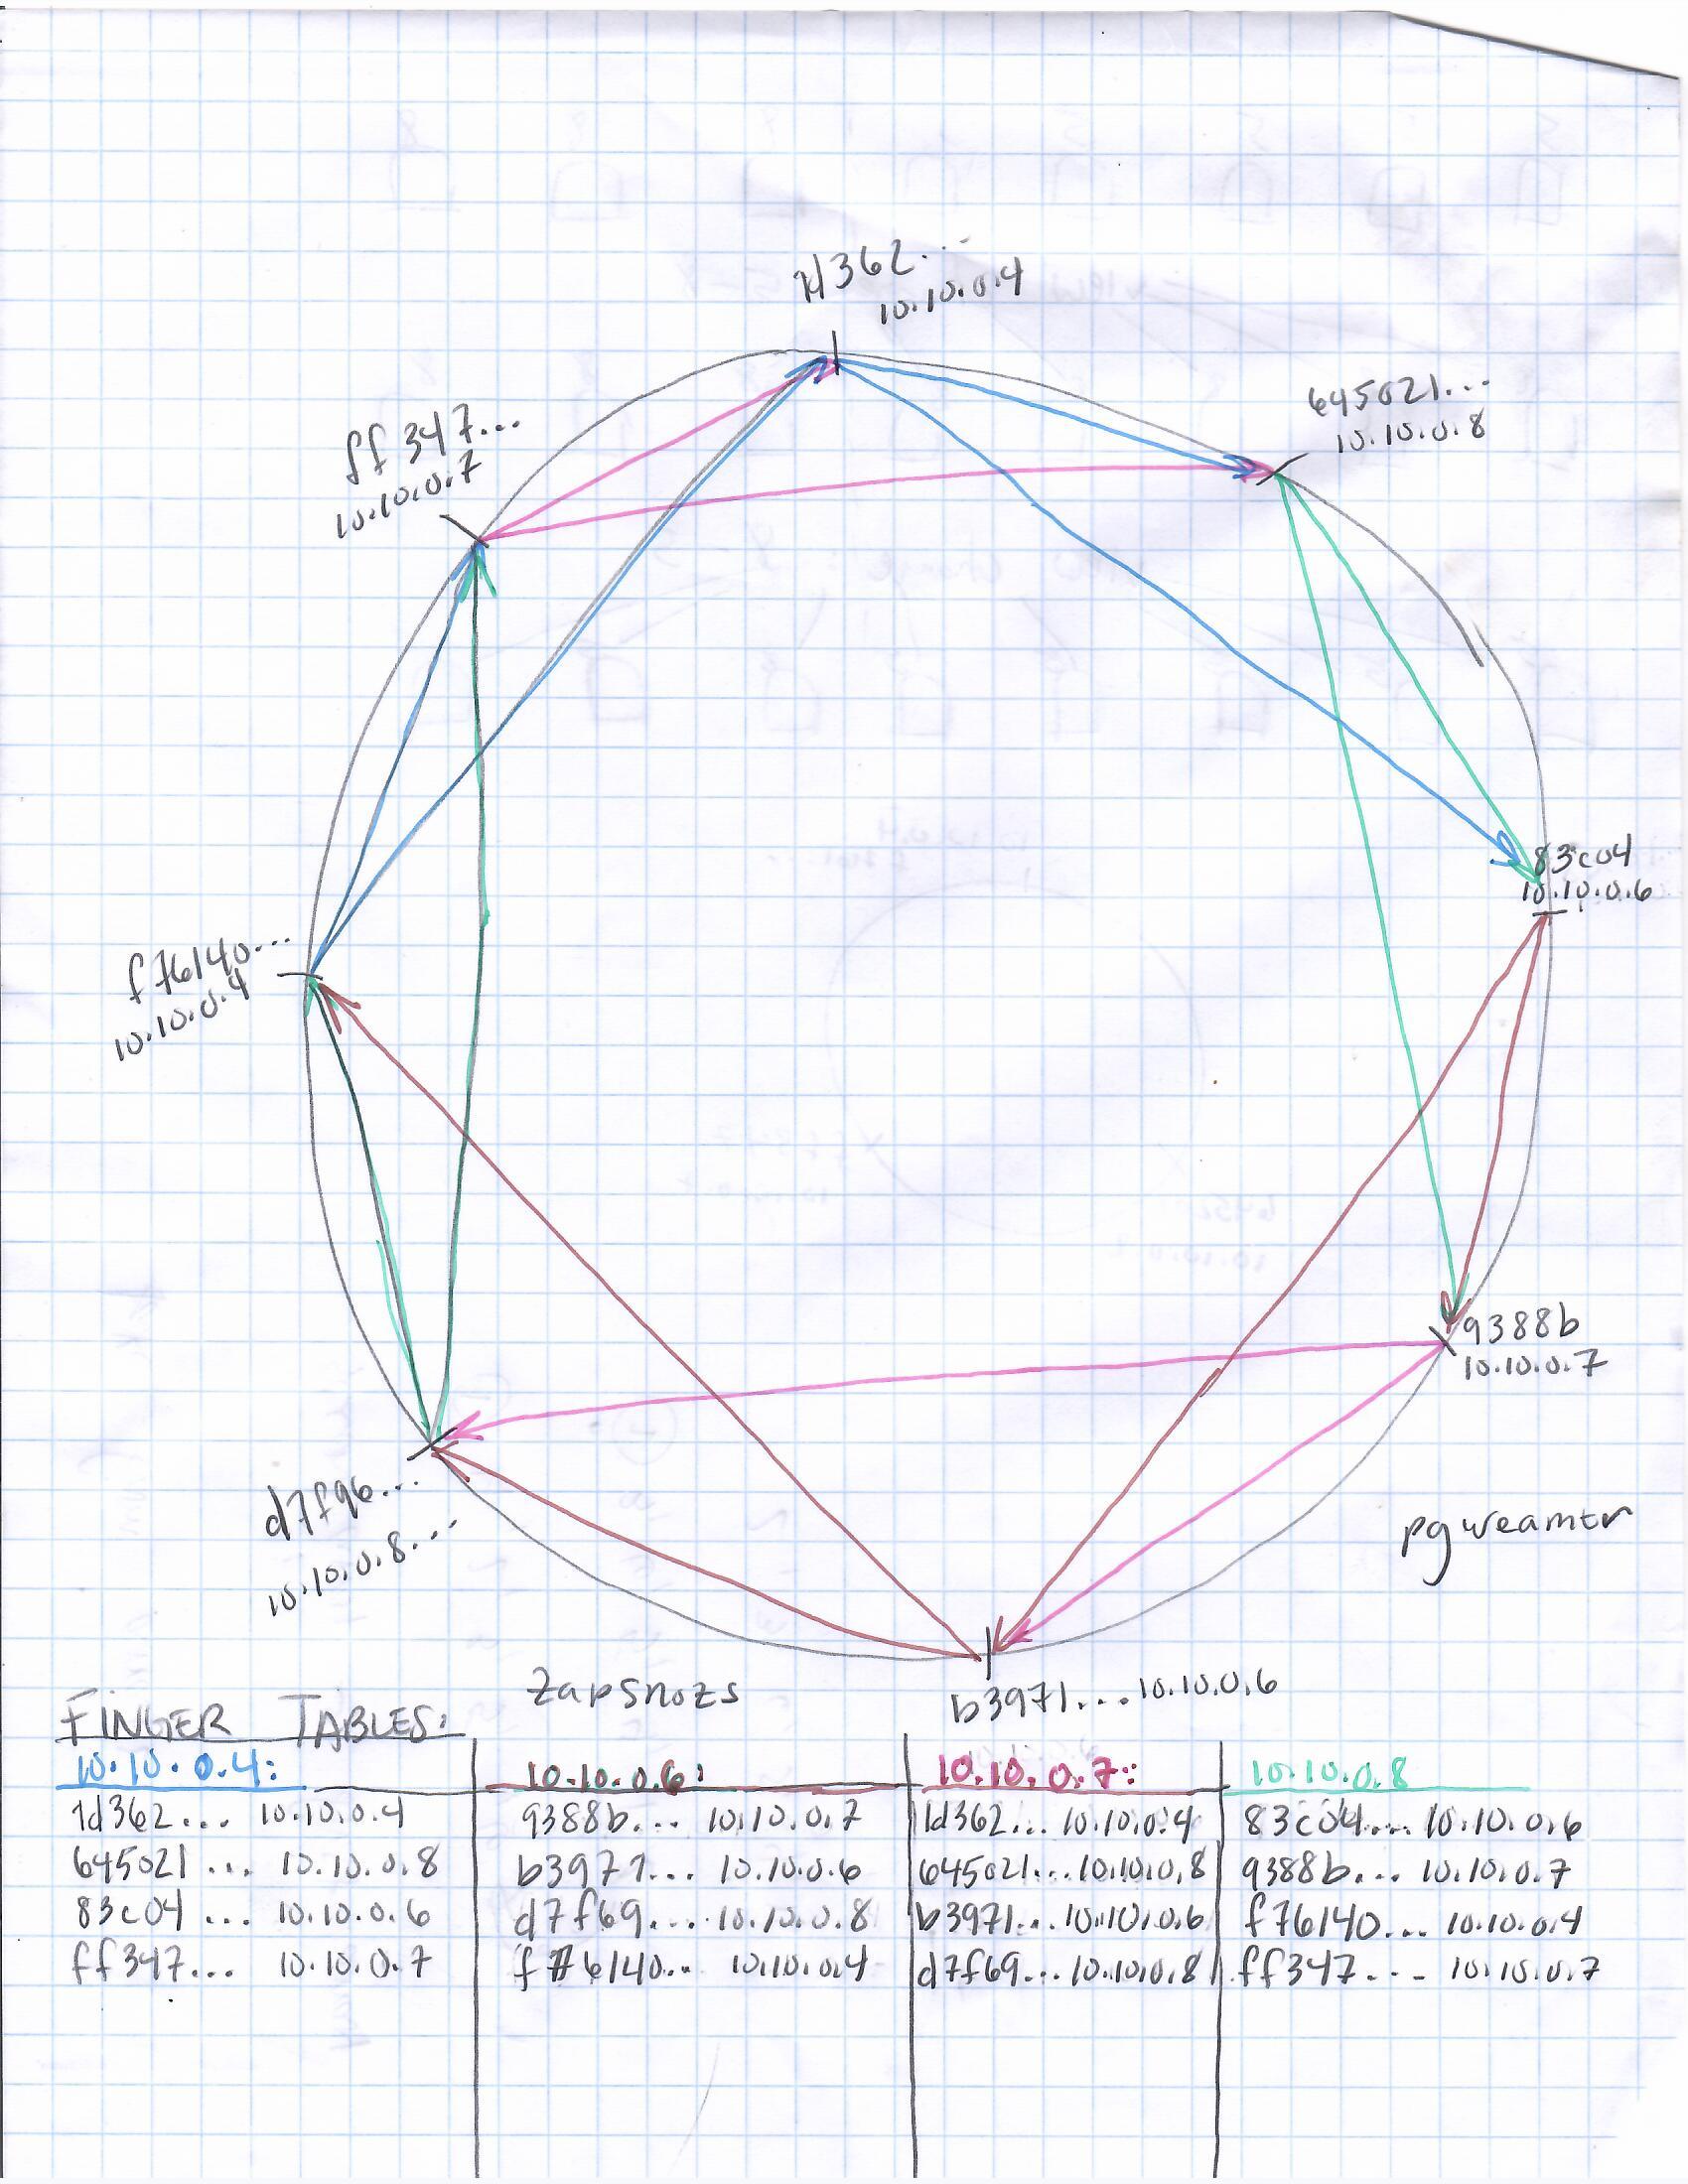 1d362...
10.10.0.4
645021...
10.10.0.8
ff347...
10.10.0.7
83c04
10.10.0.6
f76140...
10.10.0.4
9388b
10.10.0.7
d7f96...
10.10.0.8...
pgweamtr
zapsnozs
b3971... 10.10.0.6
FINGER TABLES:
10.10.0.4: 10.10.0.6: 10.10.0.7: 10.10.0.8
1d362... 10.10.0.4 9388b... 10.10.0.7 1d362... 10.10.0.4 83c04... 10.10.0.6
645021... 10.10.0.8 b3971... 10.10.0.6 645021... 10.10.0.8 9388b... 10.10.0.7
83c04... 10.10.0.6 d7f69... 10.10.0.8 b3971... 10.10.0.6 f76140... 10.10.0.4
ff347... 10.10.0.7 f76140... 10.10.0.4 d7f69... 10.10.0.8 ff347... 10.10.0.7